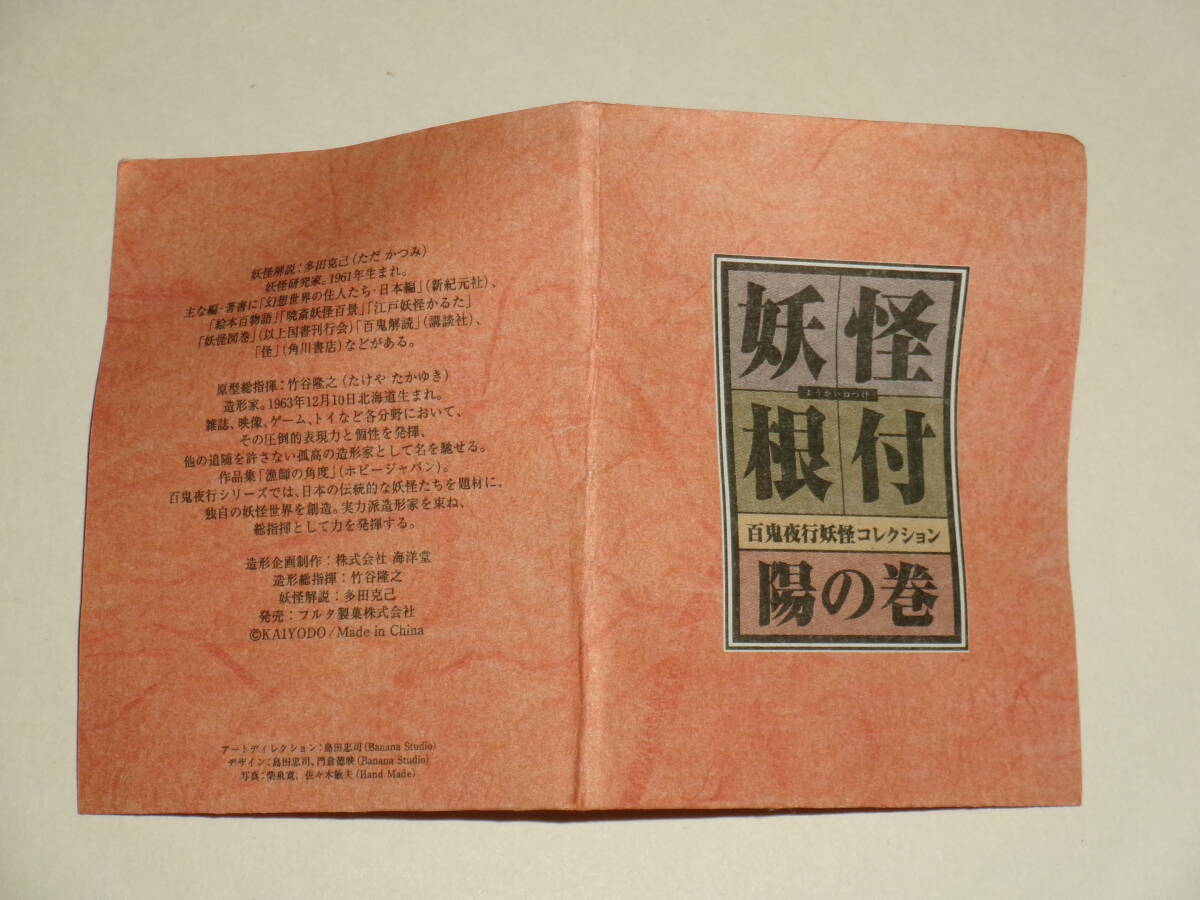 妖怪解説：多田克己（ただ かつみ）
妖怪研究家。1961年生まれ。
主な編・著書に「幻想世界の住人たち・日本編」（新紀元社）、
「絵本百物語」「暁斎妖怪百景」「江戸妖怪かるた」
「妖怪図巻」（以上国書刊行会）「百鬼解読」（講談社）、
「怪」（角川書店）などがある。
原型総指揮：竹谷隆之（たけや たかゆき）
造形家。1963年12月10日北海道生まれ。
雑誌、映像、ゲーム、トイなど各分野において、
その圧倒的表現力と個性を発揮、
他の追随を許さない孤高の造形家として名を馳せる。
作品集「漁師の角度」（ホビージャパン）。
百鬼夜行シリーズでは、日本の伝統的な妖怪たちを題材に、
独自の妖怪世界を創造。実力派造形家を束ね、
総指揮として力を発揮する。
造形企画制作：株式会社 海洋堂
造形総指揮：竹谷隆之
妖怪解説：多田克己
発売：フルタ製菓株式会社
©KAIYODO/Made in China
アートディレクション：島田忠司（Banana Studio）
デザイン：島田忠司、門倉徳映（Banana Studio）
写真：柴泉寛、佐々木敏夫（Hand Made）
妖怪
ようかいねつけ
根付
百鬼夜行妖怪コレクション
陽の巻